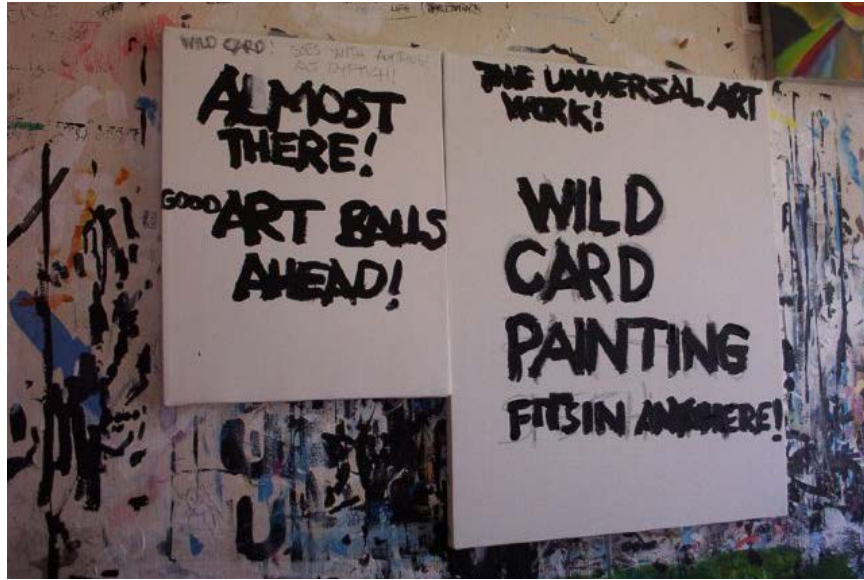 LIFE
WILD CARD! GOES WITH ANYTHING!
AS DYPTICH!
ALMOST
THERE!
GOOD ART BALLS
AHEAD!
THE UNIVERSAL ART
WORK!
WILD
CARD
PAINTING
FITS IN ANYWHERE!